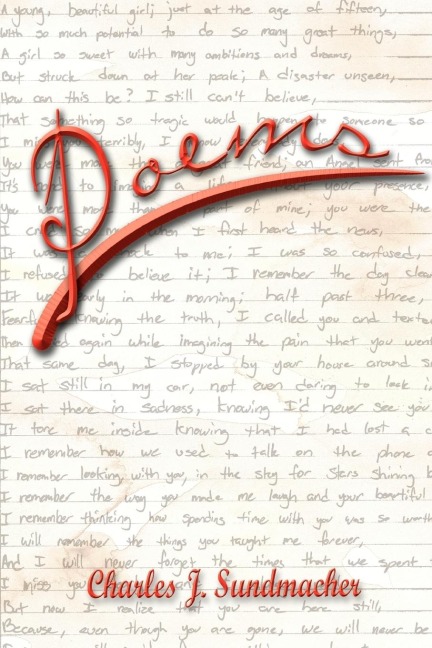 A young, beautiful girl; just at the age of fifteen,
With so much potential to do so many great things,
A girl so sweet with many ambitions and dreams,
But struck down at her peak; A disaster unseen,
How can this be? I still can't believe,
That something so tragic would happen to someone so
Poems
I terribly, I
You were friend; an Angel sent from
It's to a life your presence,
You were of mine; you were the
I when I first heard the news,
It to me; I was so confused,
I refused believe it; I remember the day
It early in the morning; half past three,
knowing the truth, I called you and
again while imagining the pain that you
That same day, I stopped by your house around
I sat still in my car, not even daring to look
I sat there in sadness, knowing I'd never see you
It tore me inside knowing that I had lost a
I remember how we used to talk on the phone
I remember looking with you, in the sky for stars shining
I remember the way you made me laugh and your beautiful
I remember thinking how spending time with you was so
I will remember the things you taught me forever,
And I will never forget the times that we spent
I miss you
Charles J. Sundmacher
But now I realize that you are here still,
Because, even though you are gone, we will never be